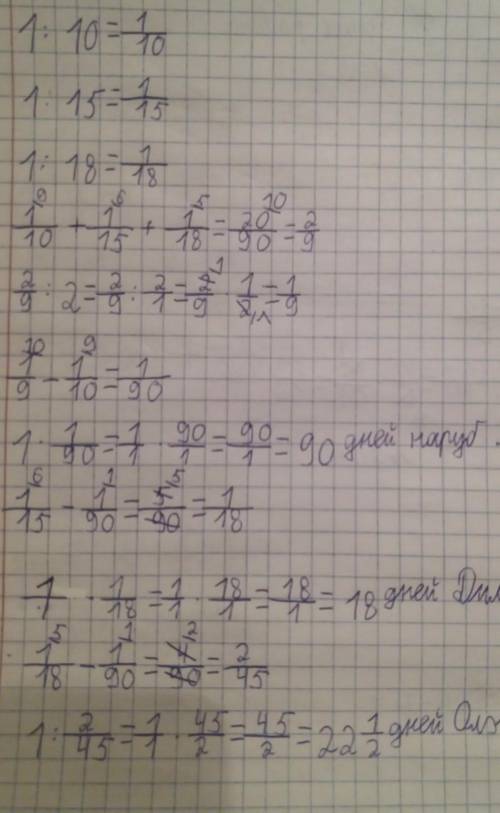 1 : 10 = 1/10
1 : 15 = 1/15
1 : 18 = 1/18
1⁹/10 + 1⁶/15 + 1⁵/18 = 20¹⁰/90 = 2/9
2/9 : 2 = 2/9 : 2/1 = 2¹/9 · 1/2₁ = 1/9
1¹⁰/9 - 1⁹/10 = 1/90
1 · 1/90 = 1/1 · 90/1 = 90/1 = 90 дней наруб
1⁶/15 - 1¹/90 = 5/90 = 1/18
1/1 · 1/18 = 1/1 · 18/1 = 18/1 = 18 дней
1⁵/18 - 1¹/90 = 4²/90 = 2/45
1 : 2/45 = 1/1 · 45/2 = 45/2 = 22 1/2 дней